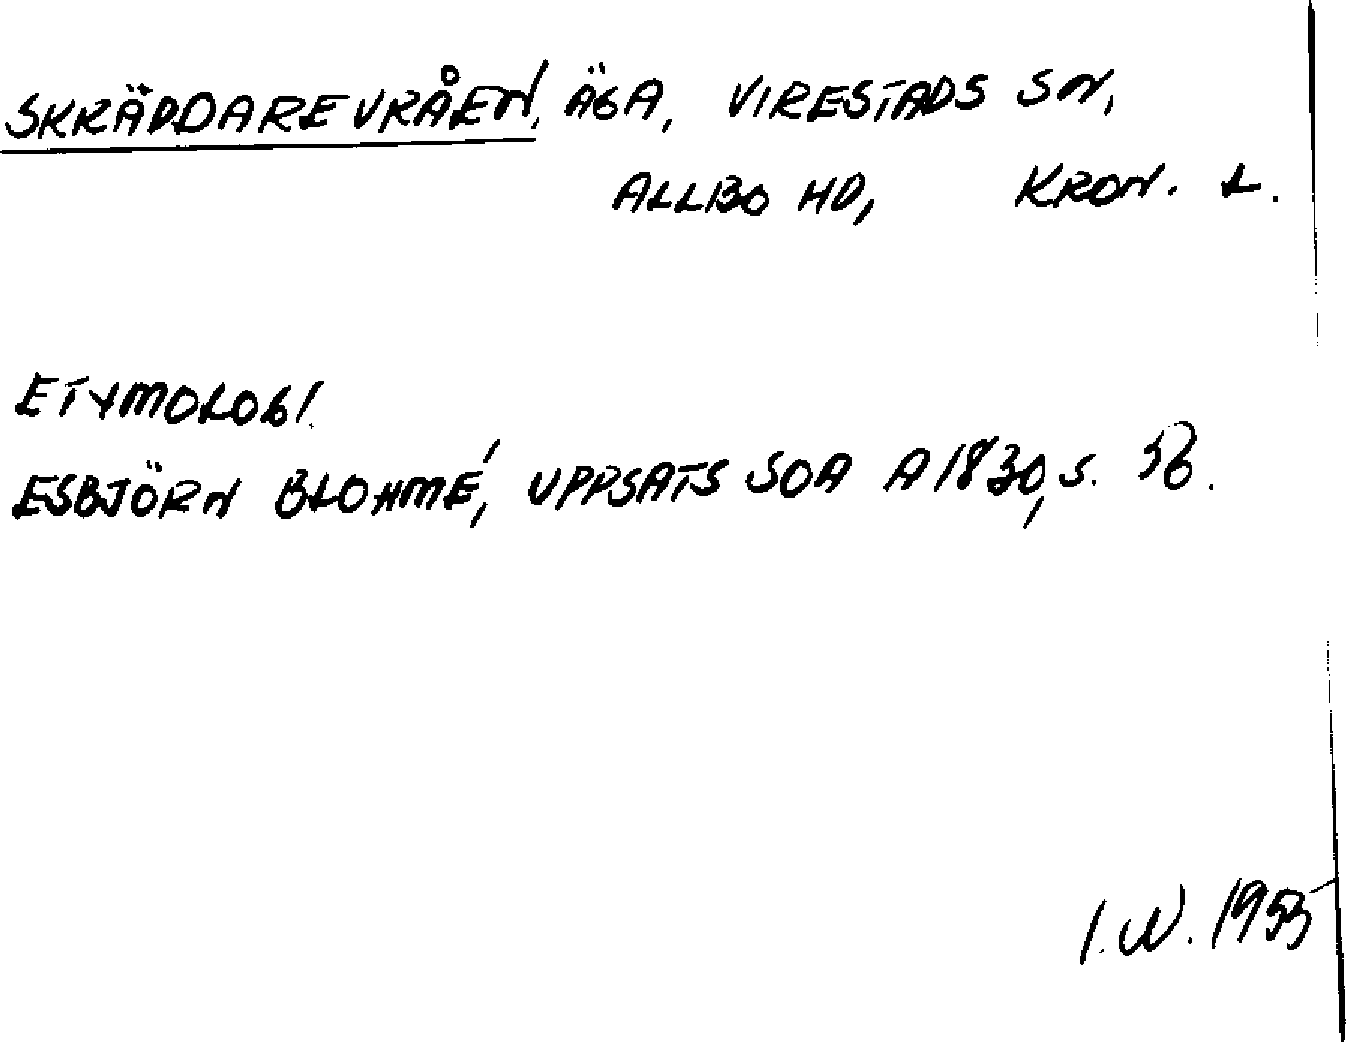 SKRÄDDAREVRÅEN, ÄGA, VIRESTADS SN,
ALLBO HD, KRON. L.
ETYMOLOGI.
ESBJÖRN BLOHMÉ, UPPSATS SOA A1830, S. 56.
I.N. 1953